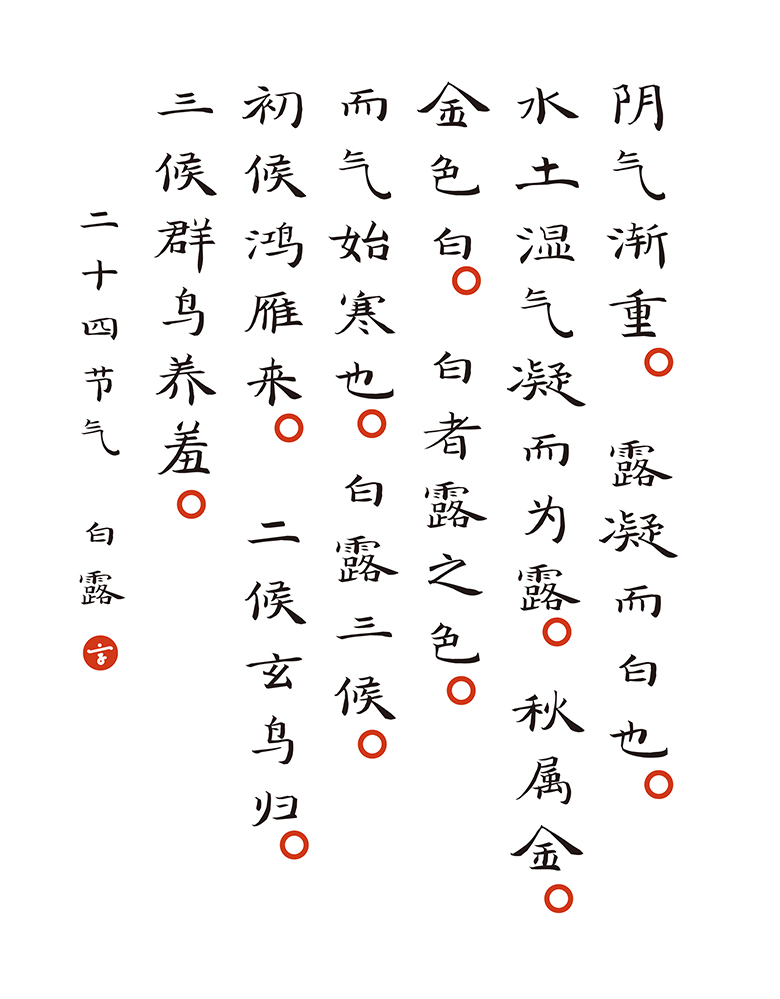 阴气渐重。露凝而白也。
水土湿气凝而为露。秋属金。
金色白。白者露之色。
而气始寒也。白露三候。
初候鸿雁来。二候玄鸟归
。三候群鸟养羞。
二十四节气 白露
言